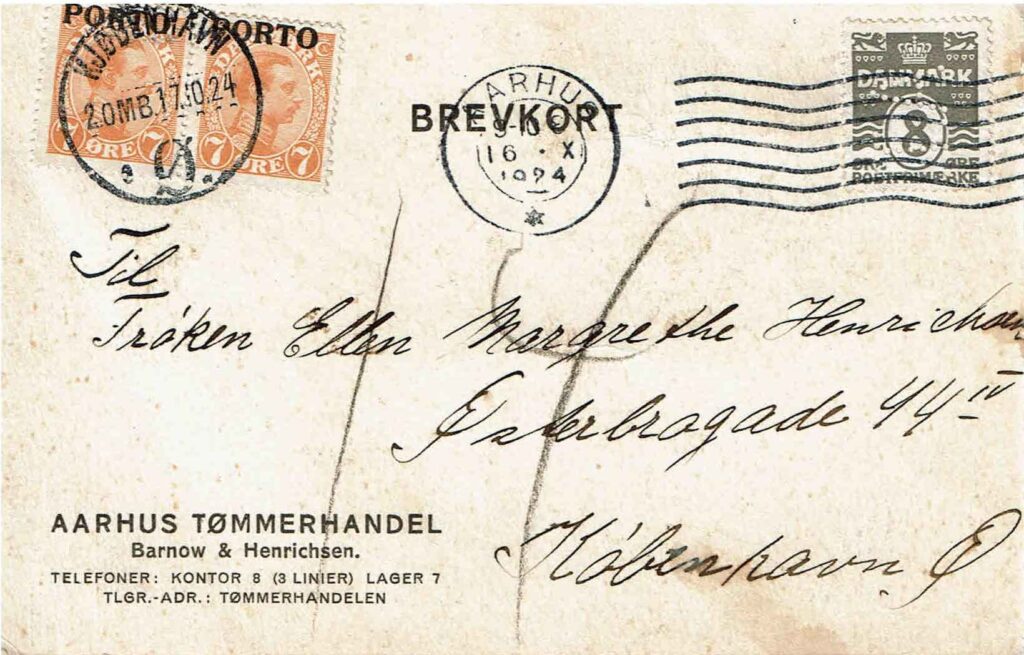 PORTO PORTO
KJØBENHAVN
20MB.17.10.24
Ø.
ØRE 7 7 ØRE 7
BREVKORT
AARHUS
16 · X
1924
DANMARK
8
ØRE ØRE
POSTFRIMÆRKE
Til
Frøken Ellen Margrethe Henrichsen
Østerbrogade 44 IV
København Ø
AARHUS TØMMERHANDEL
Barnow & Henrichsen.
TELEFONER: KONTOR 8 (3 LINIER) LAGER 7
TLGR.-ADR.: TØMMERHANDELEN